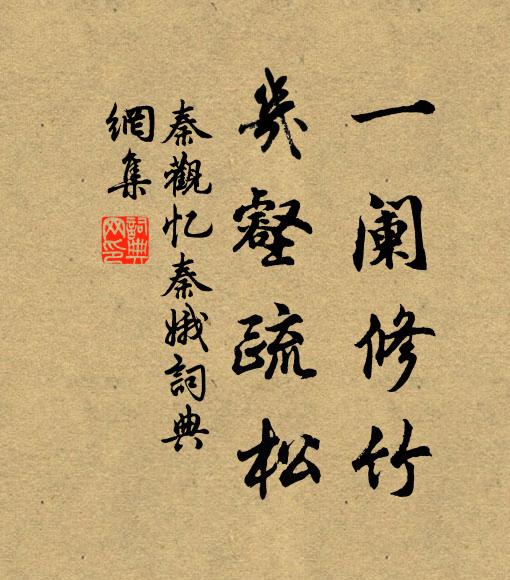 一阑修竹
几壑疏松
秦觀忆秦娥詞典
網集
詞典網印